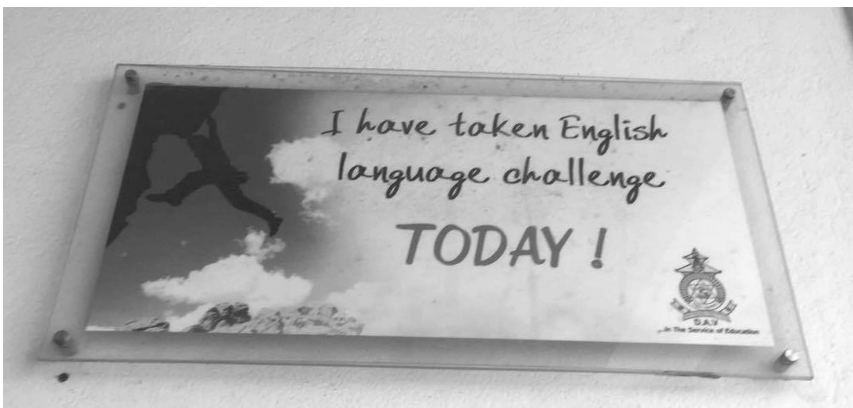 I have taken English
language challenge
TODAY !
D.A.V
In The Service of Education